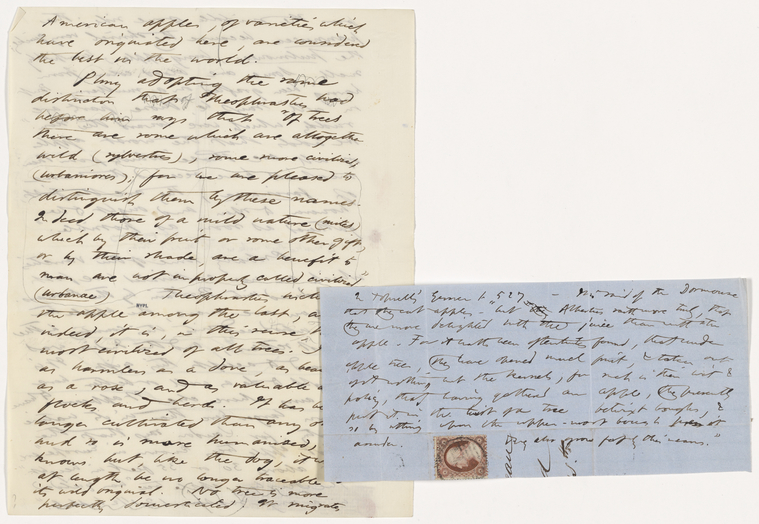 American apples, of varieties which
have originated here, are considered
the best in the world.
Pliny adopting the same
distinction that Theophrastus had
before him says that "Of trees
there are some which are altogether
wild (sylvestres), some more civilized
(urbaniores), for we are pleased to
distinguish them by these names.
Indeed those of a mild nature (mites)
which by their fruit or some other gift,
or by their shade are a benefit to
man are not improperly called civilized"
(urbanae) Theophrastus
the apple among the last, and
indeed, it is, in this sense the
most civilized of all trees.
as harmless as a dove, as
as a rose, and as valuable as
flocks and herds. It has
longer cultivated than any
and so is more humanized,
knows but like the dog, it
at length be no longer traceable to
its wild original. (No tree is more
perfectly domesticated; It migrates
In Topsell's Gesner p. 527 — It is said of the Dormouse
that they eat apples, but Albertus saith more truly, that
they are more delighted with the juice than with the
apple. For it hath been oftentimes found, that under
apple trees, they have opened much fruit, & taken out
of it nothing but the kernels, for such is their wit &
policy, that having gathered an apple, they presently
put it in the twist of a tree betwixt boughs, &
so by sitting upon the upper-most bough press it
asunder. They also grow fat by this means."